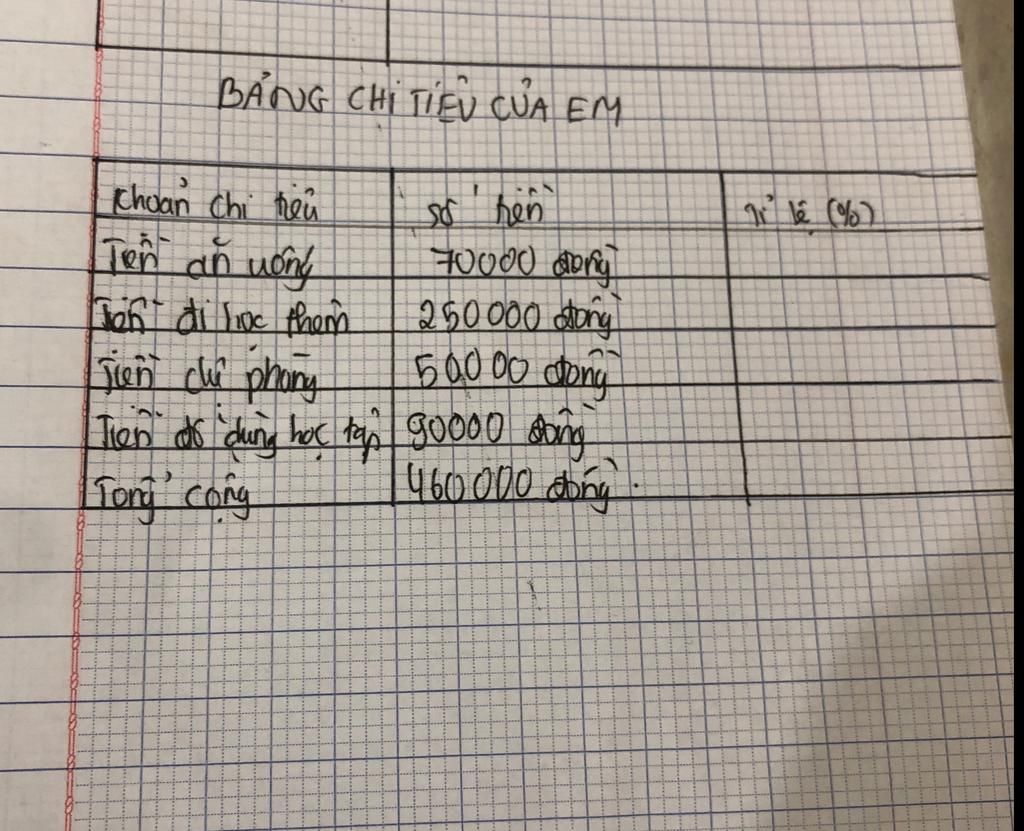 BẢNG CHI TIÊU CỦA EM
Khoản chi tiêu số tiền Tỉ lệ (%)
Tiền ăn uống 70000 đồng
Tiền đi học thêm 250000 đồng
Tiền dự phòng 50000 đồng
Tiền đồ dùng học tập 90000 đồng
Tổng cộng 460000 đồng.